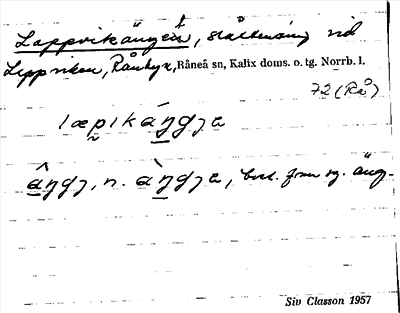 Lappvikängen, slåttmäng vid
Lappviken, Rånbyn, Råneå sn, Kalix doms. o. tg. Norrb. l.
72 (Rå)
læpikáŋgɟa
âŋgɟ, n. àŋgɟa, best. form sg. äng.
Siv Classon 1957